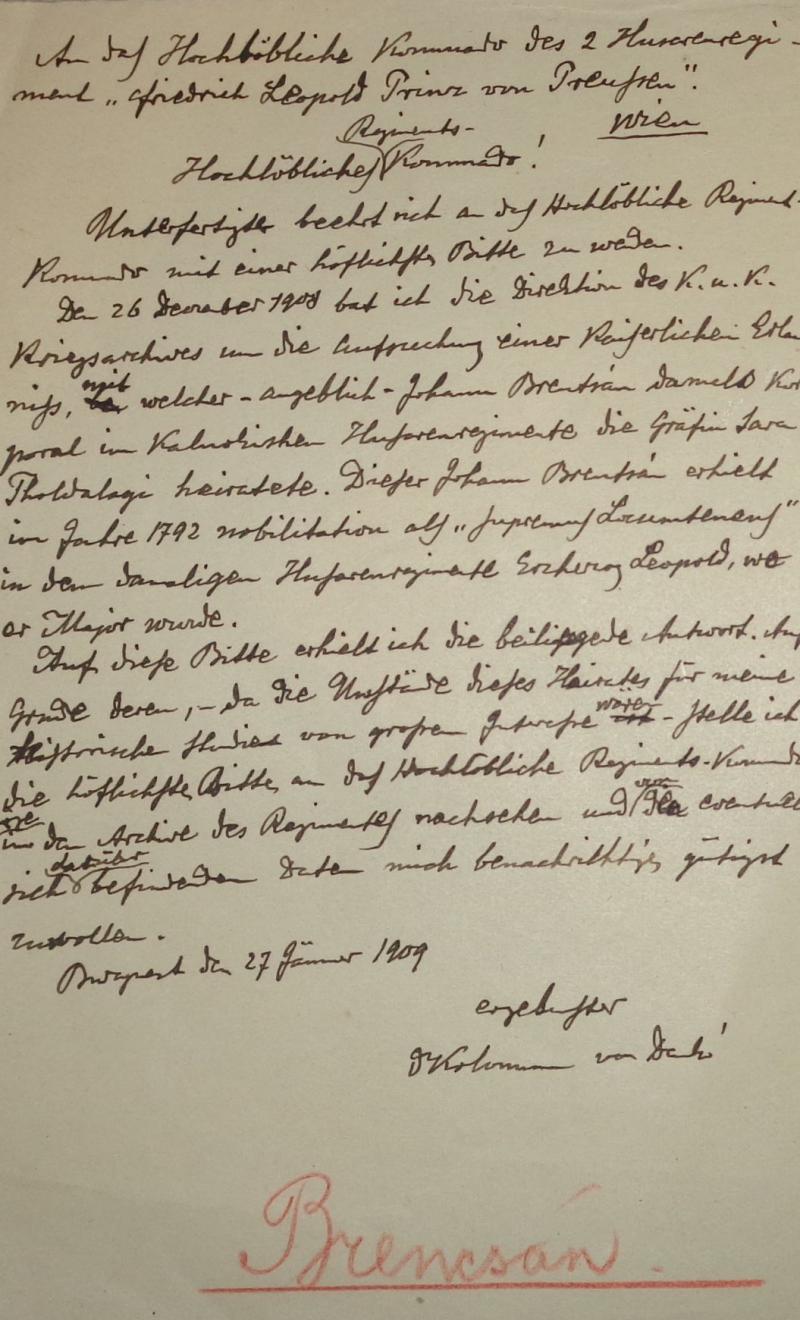 An das Hochlöbliche Kommado des 2 Husarenregi-
ment „Friedrich Leopold Prinz von Preussen".
Wien
Regiments-
Hochlöbliches Kommado!
Unterfertigter beehrt sich an das Hochlöbliche Regiment-
Komando mit einer höflichste Bitte zu weden.
Den 26 December 1908 bat ich die Direktion des K. u. K.
Kriegsarchives um die Aufsuchung einer Kaiserlichen Erla
niss, mit welcher - angeblich - Johann Brentsán damals Kor
poral im Kalnokischen Husarenregimente die Gräfin Sara
Tholdalagi heiratete. Dieser Johann Brentsán erhielt
im Jahre 1792 nobilitation als „supremus Locumtenens"
in dem damaligen Husarenregimente Erzherzog Leopold, wo
er Major wurde.
Auf diese Bitte erhielt ich die beiliegede Antwort. Auf
Grude deren, - da die Umstäde dieses Heirates für meine
historische Studien von grossem Interesse wären - stelle ich
die höflichste Bitte, an das Hochlöbliche Regiments-Komando
den Archive des Regimentes nachsehen und von eventuel
sich darüber befindenden Daten mich benachrichtigen gütigst
zu wollen.
Budapest den 27 Jänner 1909
ergebenster
Dr Koloman von
Brencsán.